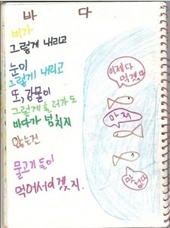 바 다
비가
그렇게 내리고
눈이
그렇게 내리고
또, 강물이
그렇게 흘러가도
바다가 넘치지
않는건
물고기들이
먹어서이겠지.
어제다
먹겠어
마셔